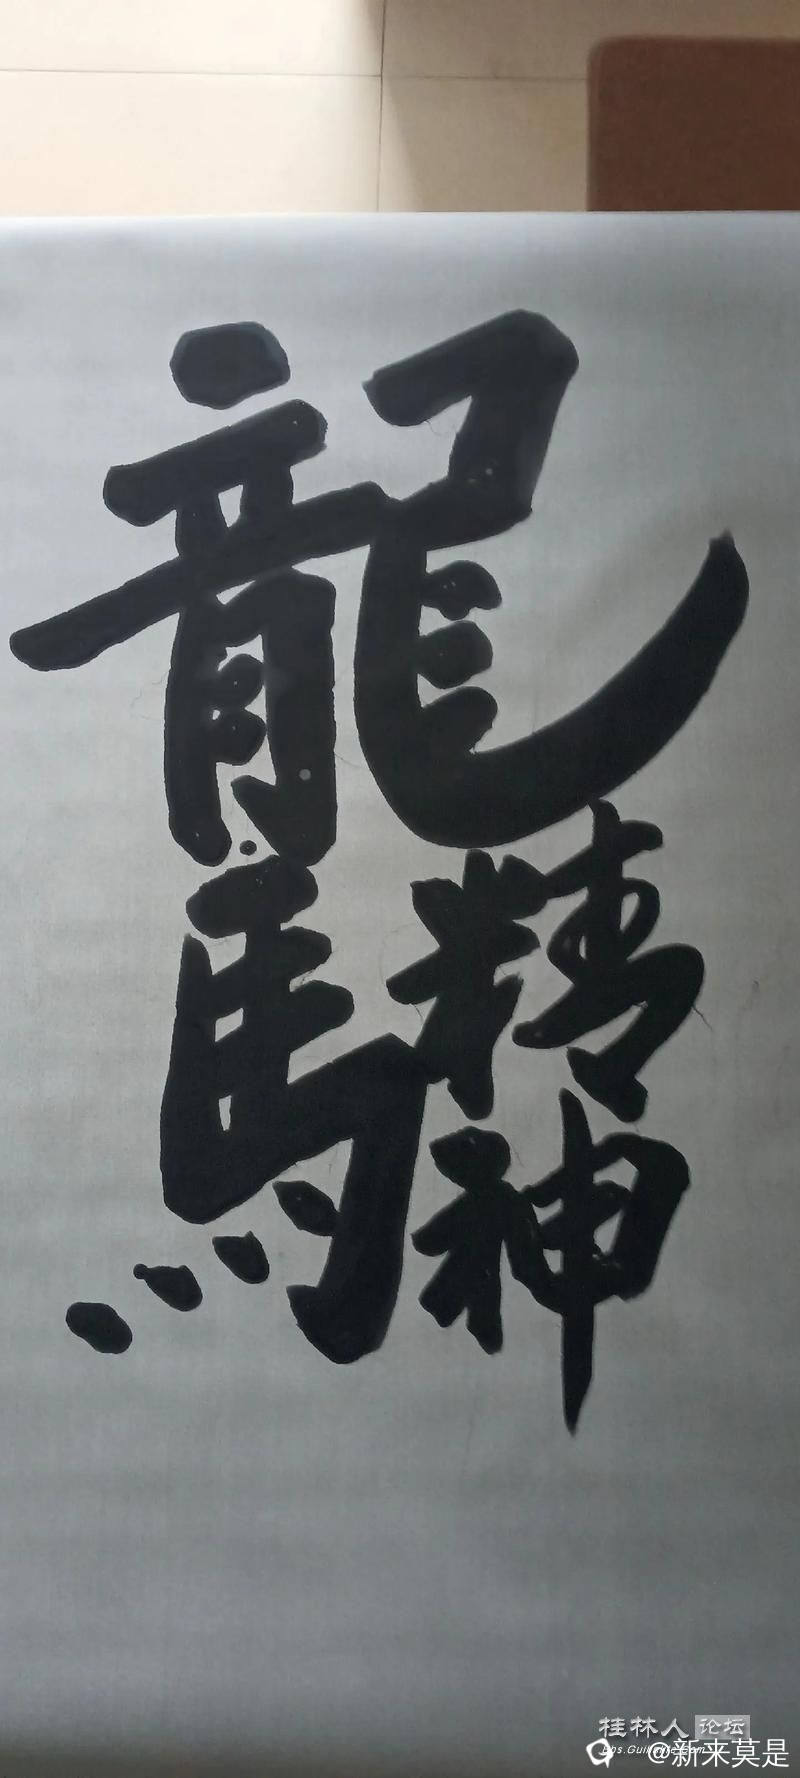 龍馬
精神
桂林人论坛
bbs.Guilinlife.com
@新来莫是